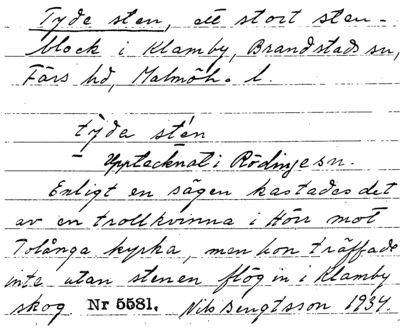 Tyde sten, ett stort sten-
block i Klamby, Brandstads sn,
Färs hd, Malmöh. l.
tyda stén
Upptecknat i Rödinge sn.
Enligt en sägen kastades det
av en trollkvinna i Hörr mot
Tolånga kyrka, men hon träffade
inte utan stenen flög in i Klamby
skog. Nr 5581. Nils Bengtsson 1934.